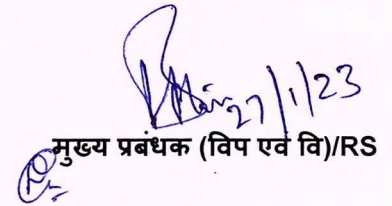 27/1/23
मुख्य प्रबंधक (विप एवं वि)/RS